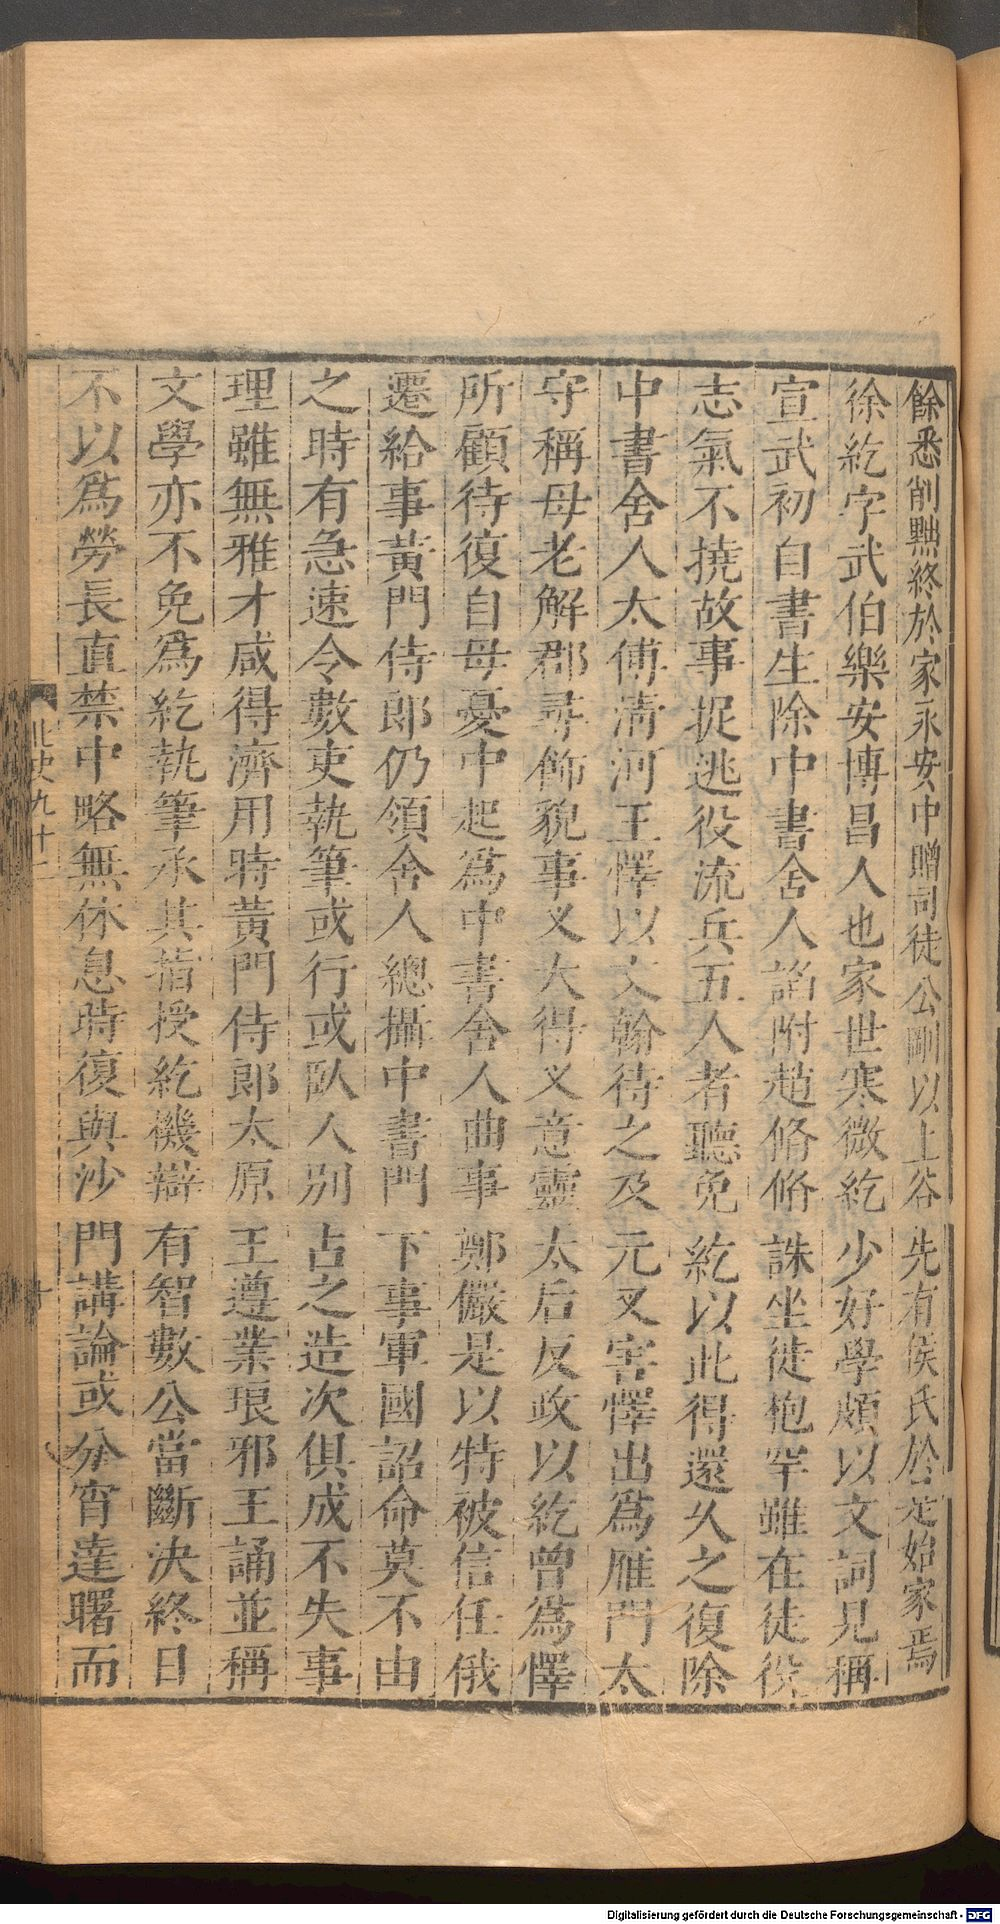 餘悉削黜終於家永安中贈司徒公剛以上谷先有侯氏於是始家焉
徐紇字武伯樂安博昌人也家世寒微紇少好學頗以文詞見稱
宣武初自書生除中書舍人諂附趙脩脩誅坐徙枹罕雖在徒役
志氣不撓故事捉逃役流兵五人者聽免紇以此得還久之復除
中書舍人太傅清河王懌以文翰待之及元叉害懌出爲雁門太
守稱母老解郡尋飾貌事叉大得叉意靈太后反政以紇曾爲懌
所顧待復自母憂中起爲中書舍人曲事鄭儼是以特被信任俄
遷給事黃門侍郎仍領舍人總攝中書門下事軍國詔命莫不由
之時有急速令數吏執筆或行或臥人別占之造次俱成不失事
理雖無雅才咸得濟用時黃門侍郎太原王遵業琅邪王誦並稱
文學亦不免爲紇執筆承其指授紇機辯有智數公當斷決終日
不以爲勞長直禁中略無休息時復與沙門講論或分宵達曙而
北史九十二
十
Digitalisierung gefördert durch die Deutsche Forschungsgemeinschaft - DFG